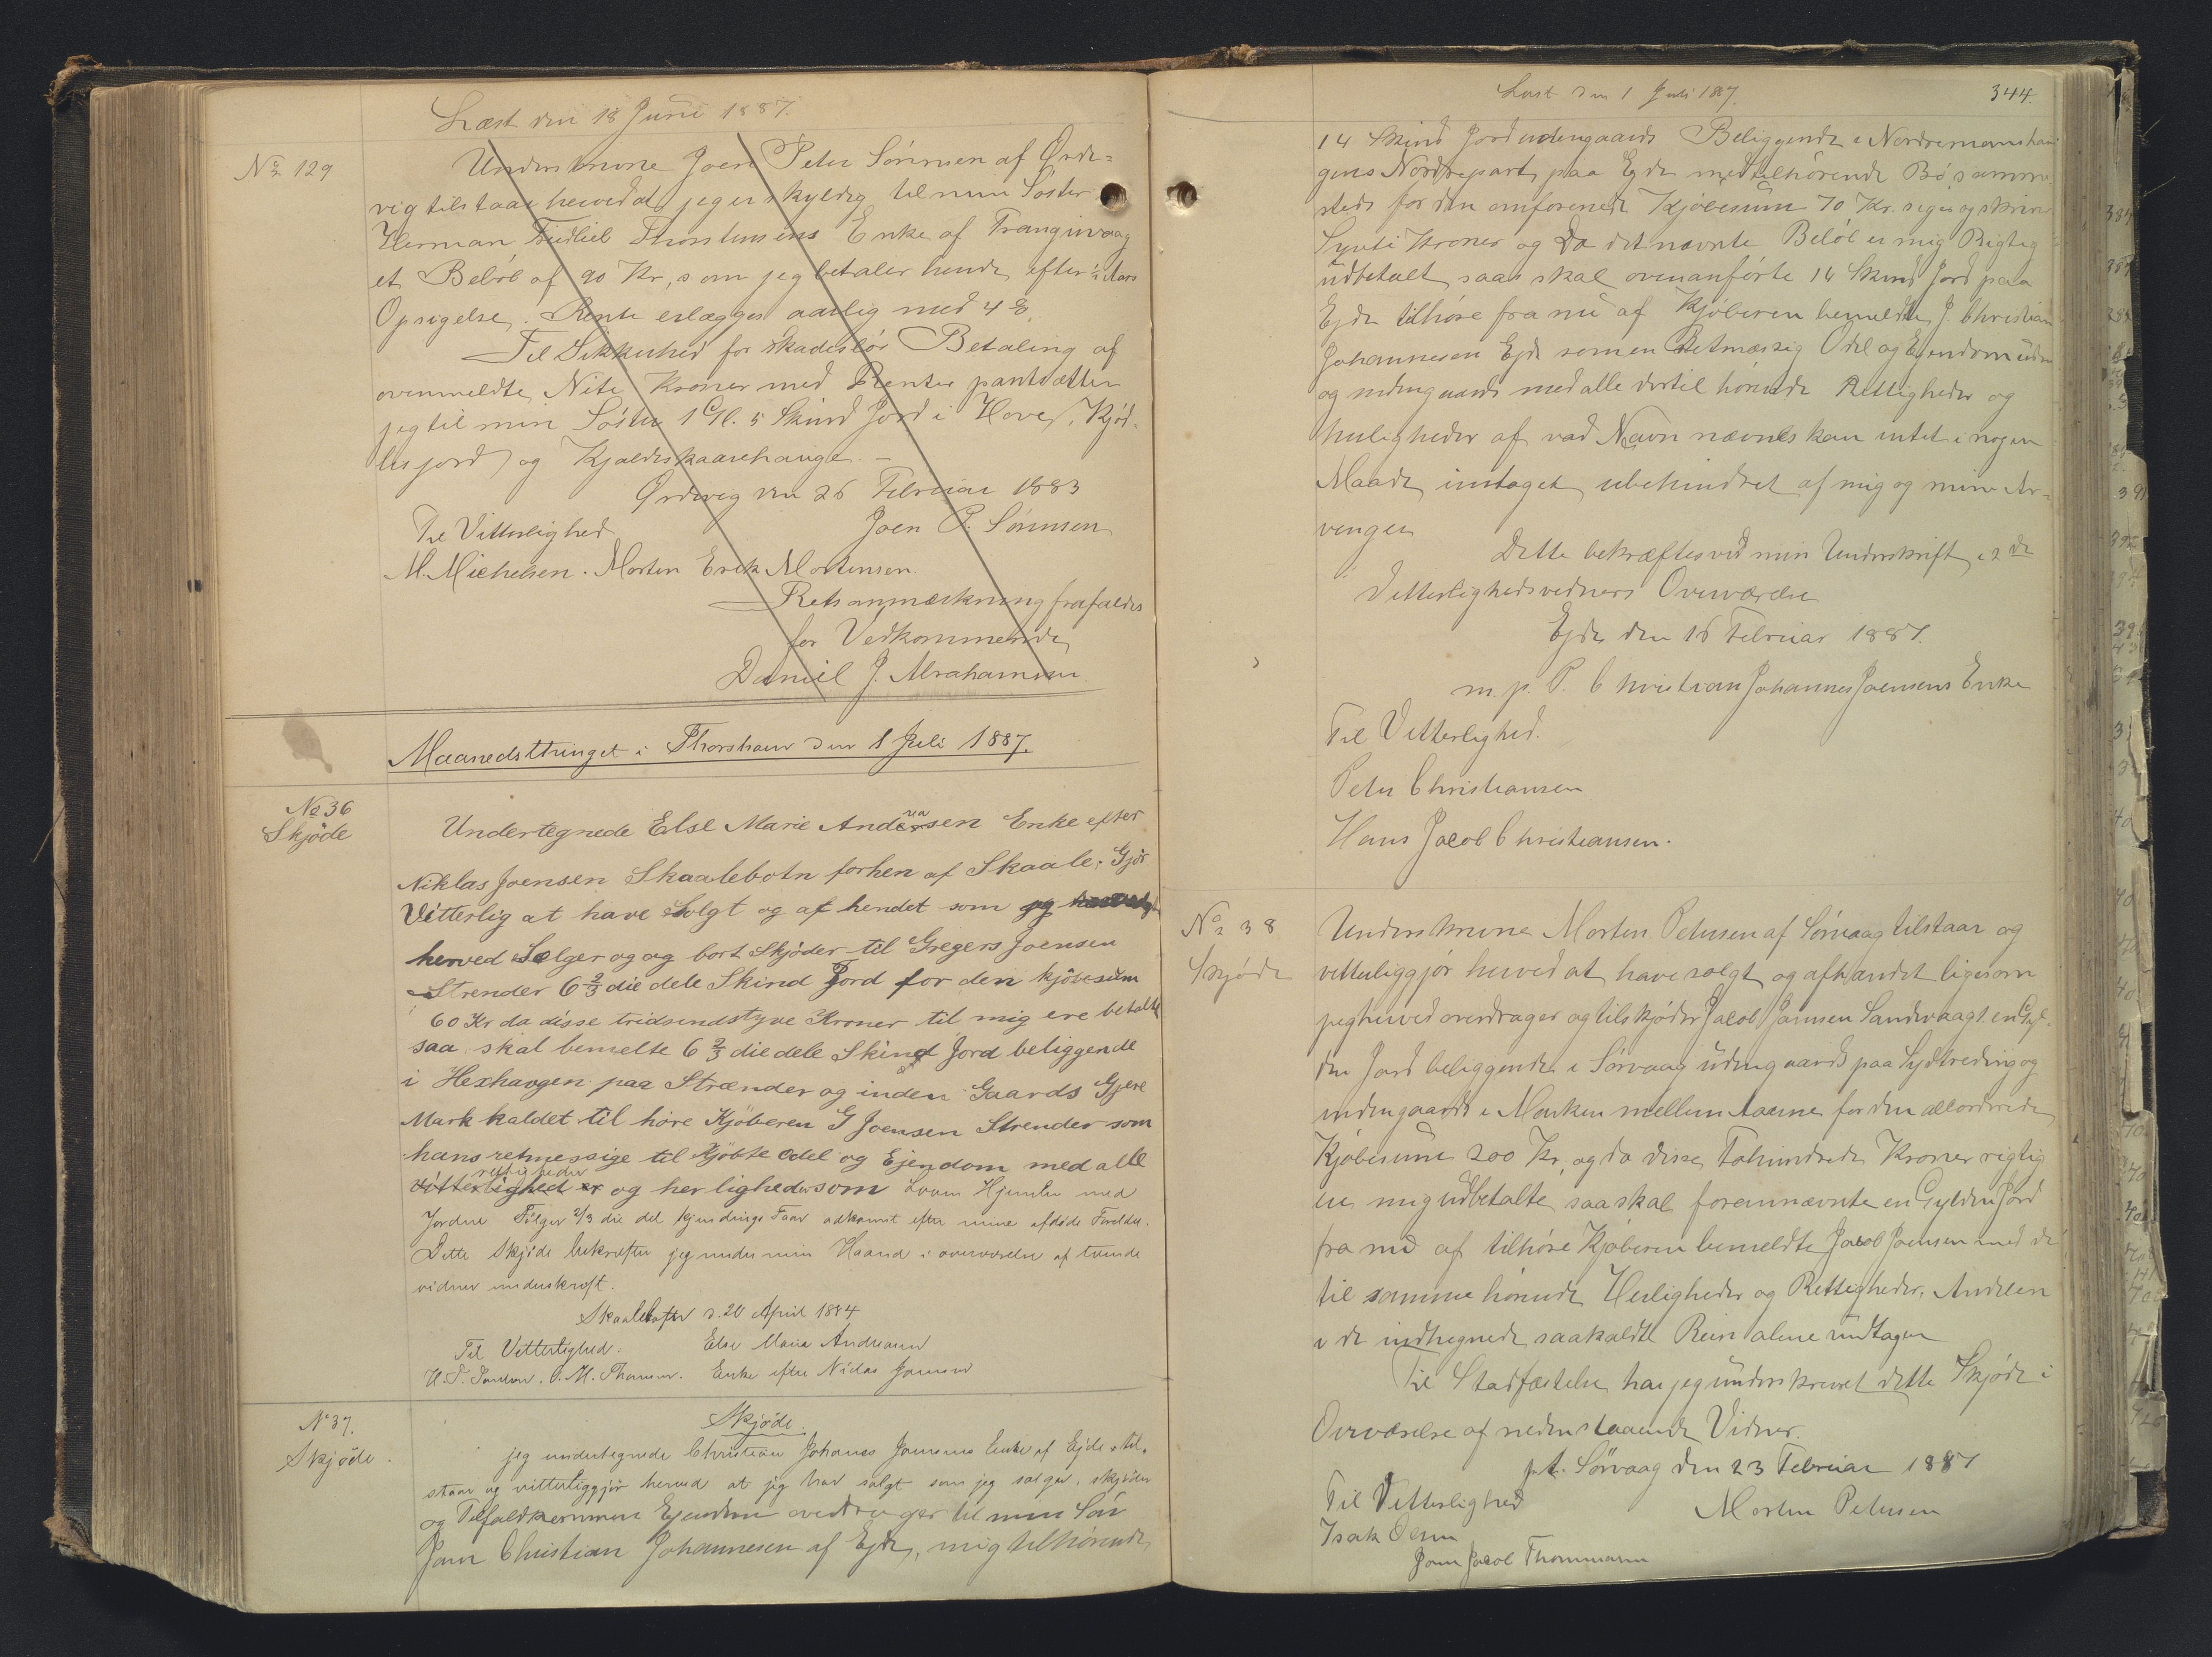 Læst den 18 Juni 1887.
No 129
Underskrevne Joen Peter Sørensen af Ørde=
vig tilstaar herved at jeg er skyldig til min Søster
Herman Fredlieb Thorstensens Enke af Trangisvaag
et Beløb af 90 Kr, som jeg betaler hende efter ½ Aars
Opsigelse. Rente erlægges aarlig med 4 %.
Til Sikkerhed for skadesløs Betaling af
ovenmeldte Niti Kroner med Renter pantsætter
jeg til min Søster 1 Gl. 5 Skind Jord i Hove,
og
Ørdevig den 26 Februar 1883
Til Vitterlighed Joen P. Sørensen
M. Michelsen. Morten Erik Mortensen.
Retsanmærkning frafaldes
for Vedkommende
Daniel J. Abrahamsen.
Maanedsthinget i Thorshavn den 1 Juli 1887.
No 36
Skjøde
Undertegnede Else Marie Andersen Enke efter
Niklas Joensen Skaalebotn forhen af Skaale. Gjør
Vitterlig at have Solgt og af hendet som jeg
herved Sælger og og bort Skjøder til Gregers Joensen
Strender 6 2/3 die dele Skind Jord for den kjøbesum
60 Kr da disse tridsendstyve Kroner til mig ere betalte
saa skal bemelte 6 2/3 die dele Skind Jord beliggende
i Hexhavgen paa Strænder og inden Gaards Gjere
Mark kaldet til høre Kjøberen G Joensen Strender som
hans retmessige til Kjøbte Odel og Ejendom med alle
rettigheder
og herligheder som Loven Hjemler med
Jorden Følger 2/3 die del Kjendings Faar adkomst efter mine afdøde Forældre.
Dette Skjøde bekræfter jeg under min Haand i overværelse af tvende
vidner underskreft.
Skaalebotn d. 20 April 1884
Til Vitterlighed: Else Maria Andreasen
M. Thomsen. Enke efter Niclas Joensen
No 37.
Skjøde.
Skjøde.
jeg undertegnede Christian Johannes Joensens Enke af Ejde til=
staar og vitterliggjør herved at jeg har solgt som jeg sælger, skjøder
og Ejendom overdrager til min Søn
Joen Christian Johannesen af Ejde, mig tilhørende
Læst den 1 Juli 1887.
344.
14 Skind Jord udengaards Beliggende i Nordremanshau
gens Nordrepart, paa Ejde medtilhørende Bø, samme
steds for den omforenede Kjøbesum 70 Kr. siger og skriver
Syvti Kroner og Da det nævnte Beløb er mig Rigtig
udbetalt saa skal ovenanførte 14 Skind Jord paa
Ejde tilhøre fra nu af Kjøberen bemeldte J. Christian
Johannesen Ejde som en Retmæssig Odel og Ejendom uden
og indengaards med alle dertil hørende Rettigheder og
herligheder af vad Navn nævnes kan intet i nogen
Maade untaget, ubehindret af mig og mine Ar=
vinger
Dette bekræftes ved min Underskrift, i 2 de
Vitterlighedsvidners Overværelse
Ejde den 16 Februar 1887.
m. p. P. Christian Johannes Joensens Enke
Til Vitterlighed.
Peter Christiansen
Hans Jacob Christiansen.
No 38
Skjøde
Underskrevne Morten Petersen af Sørvaag tilstaar og
vitterliggjør herved at have solgt og afhændet ligesom
jeg herved overdrager og tilskjøder Jacob Joensen Sandevaag 1. en Gyl=
den Jord beliggende i Sørvaag udengaards paa Sydtreding og
indengaards i Marken mellem Aaerne for den accorderede
Kjøbesum 200 Kr., og da disse Tohundrede Kroner rigtig
er mig udbetalte, saa skal forennævnte en Gylden Jord
fra nu af tilhøre Kjøberen bemeldte Jacob Joensen med de
til samme hørende Herligheder og Rettigheder, Andelen
i de indhegnede saakaldte Rein alene undtagen
Til Stadfæstelse har jeg underskrevet dette Skjøde i
Overværelse af nedenstaaende Vidner.
p. t. Sørvaag den 23 Februar 1887
Til Vitterlighed Morten Petersen
Isak
Joen Jacob Thommasen